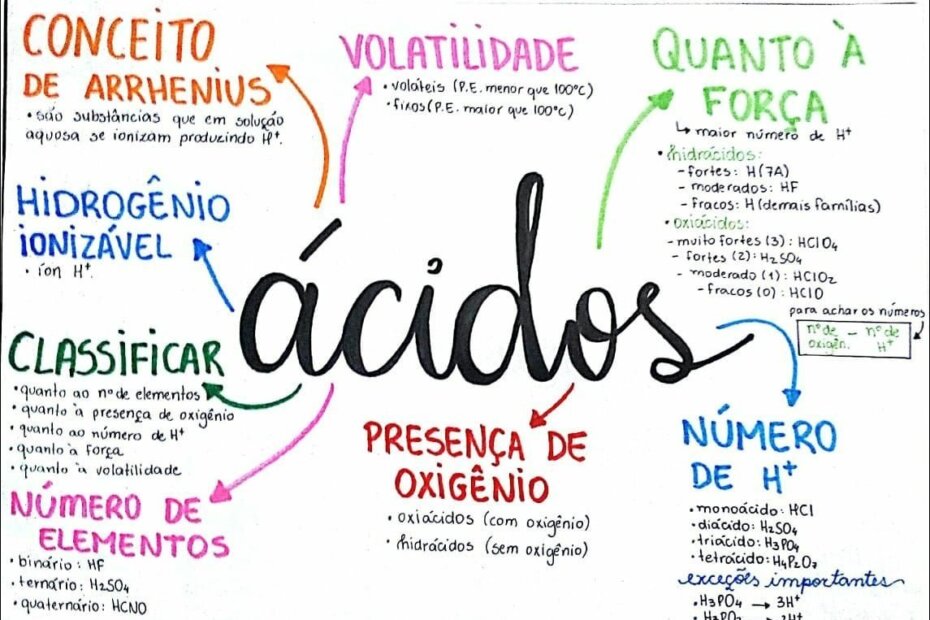 CONCEITO
DE ARRHENIUS
• são substâncias que em solução
aquosa se ionizam produzindo H⁺.
VOLATILIDADE
• voláteis (P.E. menor que 100°C)
• fixos (P.E. maior que 100°C)
QUANTO À
FORÇA
↳ maior número de H⁺
• hidrácidos:
- fortes: H(7A)
- moderados: HF
- fracos: H(demais famílias)
• oxiácidos:
- muito fortes (3): HClO₄
- fortes (2): H₂SO₄
- moderado (1): HClO₂
- fracos (0): HClO
para achar os números
nº de oxigên. - nº de H⁺
HIDROGÊNIO
IONIZÁVEL
• íon H⁺.
ácidos
CLASSIFICAR
• quanto ao nº de elementos
• quanto à presença de oxigênio
• quanto ao número de H⁺
• quanto à força
• quanto à volatilidade
NÚMERO DE
ELEMENTOS
• binário: HF
• ternário: H₂SO₄
• quaternário: HCNO
PRESENÇA DE
OXIGÊNIO
• oxiácidos (com oxigênio)
• hidrácidos (sem oxigênio)
NÚMERO
DE H⁺
• monoácido: HCl
• diácido: H₂SO₄
• triácido: H₃PO₄
• tetrácido: H₄P₂O₇
exceções importantes
• H₃PO₄ → 3H⁺